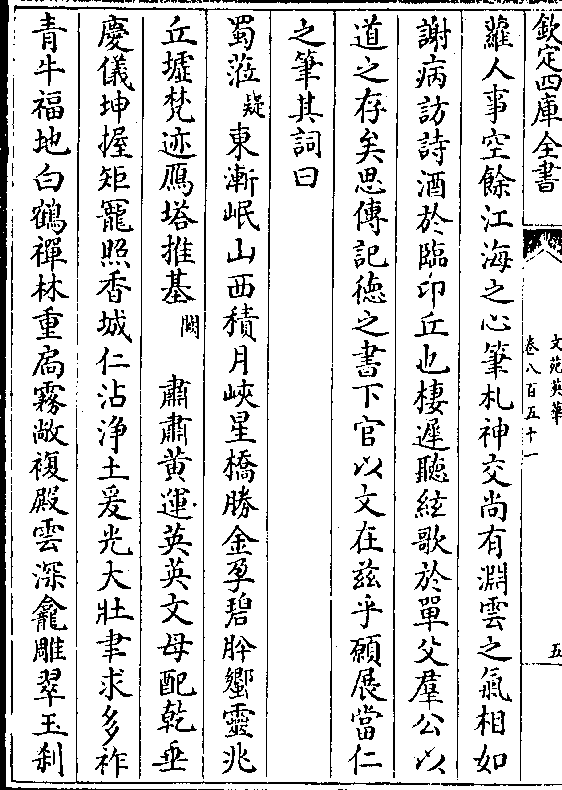 欽定四庫全書
文苑英華
卷八百五十一
五
蘿人事空餘江海之心筆札神交尚有淵雲之氣相如
謝病訪詩酒於臨卭丘也棲遲聽絃歌於單父羣公以
道之存矣思傳記徳之書下官以文在兹乎願展當仁
之筆其詞曰
蜀蒞疑東漸岷山西積月峽星橋勝金孕碧肸蠁靈兆
丘墟梵迹鴈塔推基闕肅肅黄運英英文母配乾垂
慶儀坤握矩寵照香城仁沾浄土爰光大壯聿求多祚
青牛福地白鶴禪林重扃霧敞複殿雲深龕雕翠玉刹